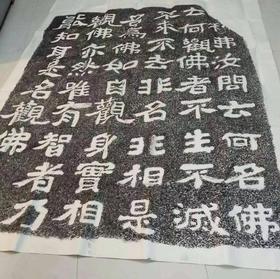 佛汝問云何名佛
云何觀佛者不生不滅
不来不去非名非相是
名為佛如自觀身實相
觀佛亦然唯有智者乃
能知耳是名觀佛